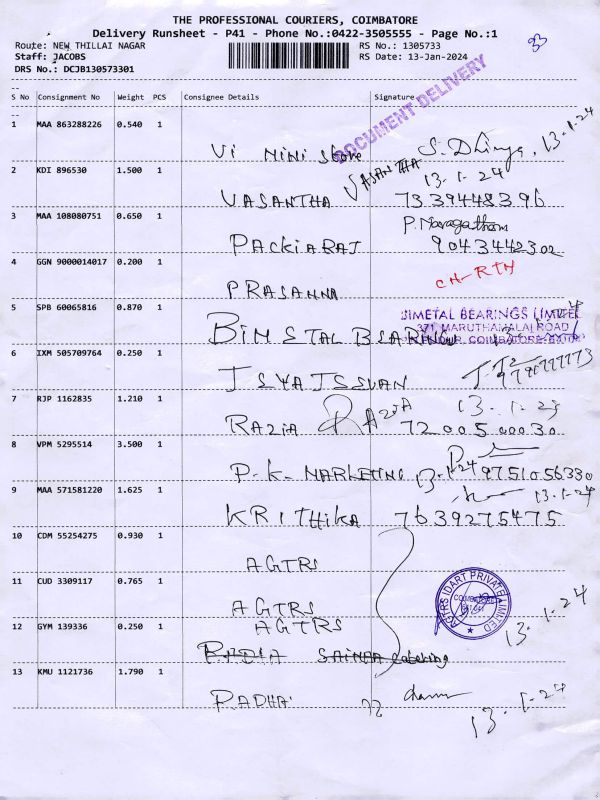 THE PROFESSIONAL COURIERS, COIMBATORE
Delivery Runsheet - P41 - Phone No.:0422-3505555 - Page No.:1
Route: NEW THILLAI NAGAR RS No.: 1305733
Staff: JACOBS RS Date: 13-Jan-2024
DRS No.: DCJB130573301
DOCUMENT DELIVERY
--
S No Consignment No Weight PCS Consignee Details Signature
--
1 MAA 863288226 0.540 1 Vi MINI Store S. Dhinya, 13-1-24
2 KDI 896530 1.500 1 VASANTHA VASANTHA 13-1-24 7339448396
3 MAA 108080751 0.650 1 PACKIARAJ 9043442302
4 GGN 9000014017 0.200 1 PRASANNA CH-RTH
5 SPB 60065816 0.870 1 BIMETAL BEARING
BIMETAL BEARINGS LIMITED
371, MARUTHAMALAI ROAD
6 IXM 505709764 0.250 1
7 RJP 1162835 1.210 1 RAZIA RAZIA 13-1-24 7200500030
8 VPM 5295514 3.500 1 P.K. MARKETING 13-1-24 9751056330
9 MAA 571581220 1.625 1 KRITHIKA 13-1-24 7639275475
10 CDM 55254275 0.930 1 AGTRS
11 CUD 3309117 0.765 1 AGTRS
AGTRS IDART PRIVATE LIMITED
13-1-24
12 GYM 139336 0.250 1 AGTRS
RADIA SAINAA catering
13 KMU 1121736 1.790 1 RADHA 13-1-24